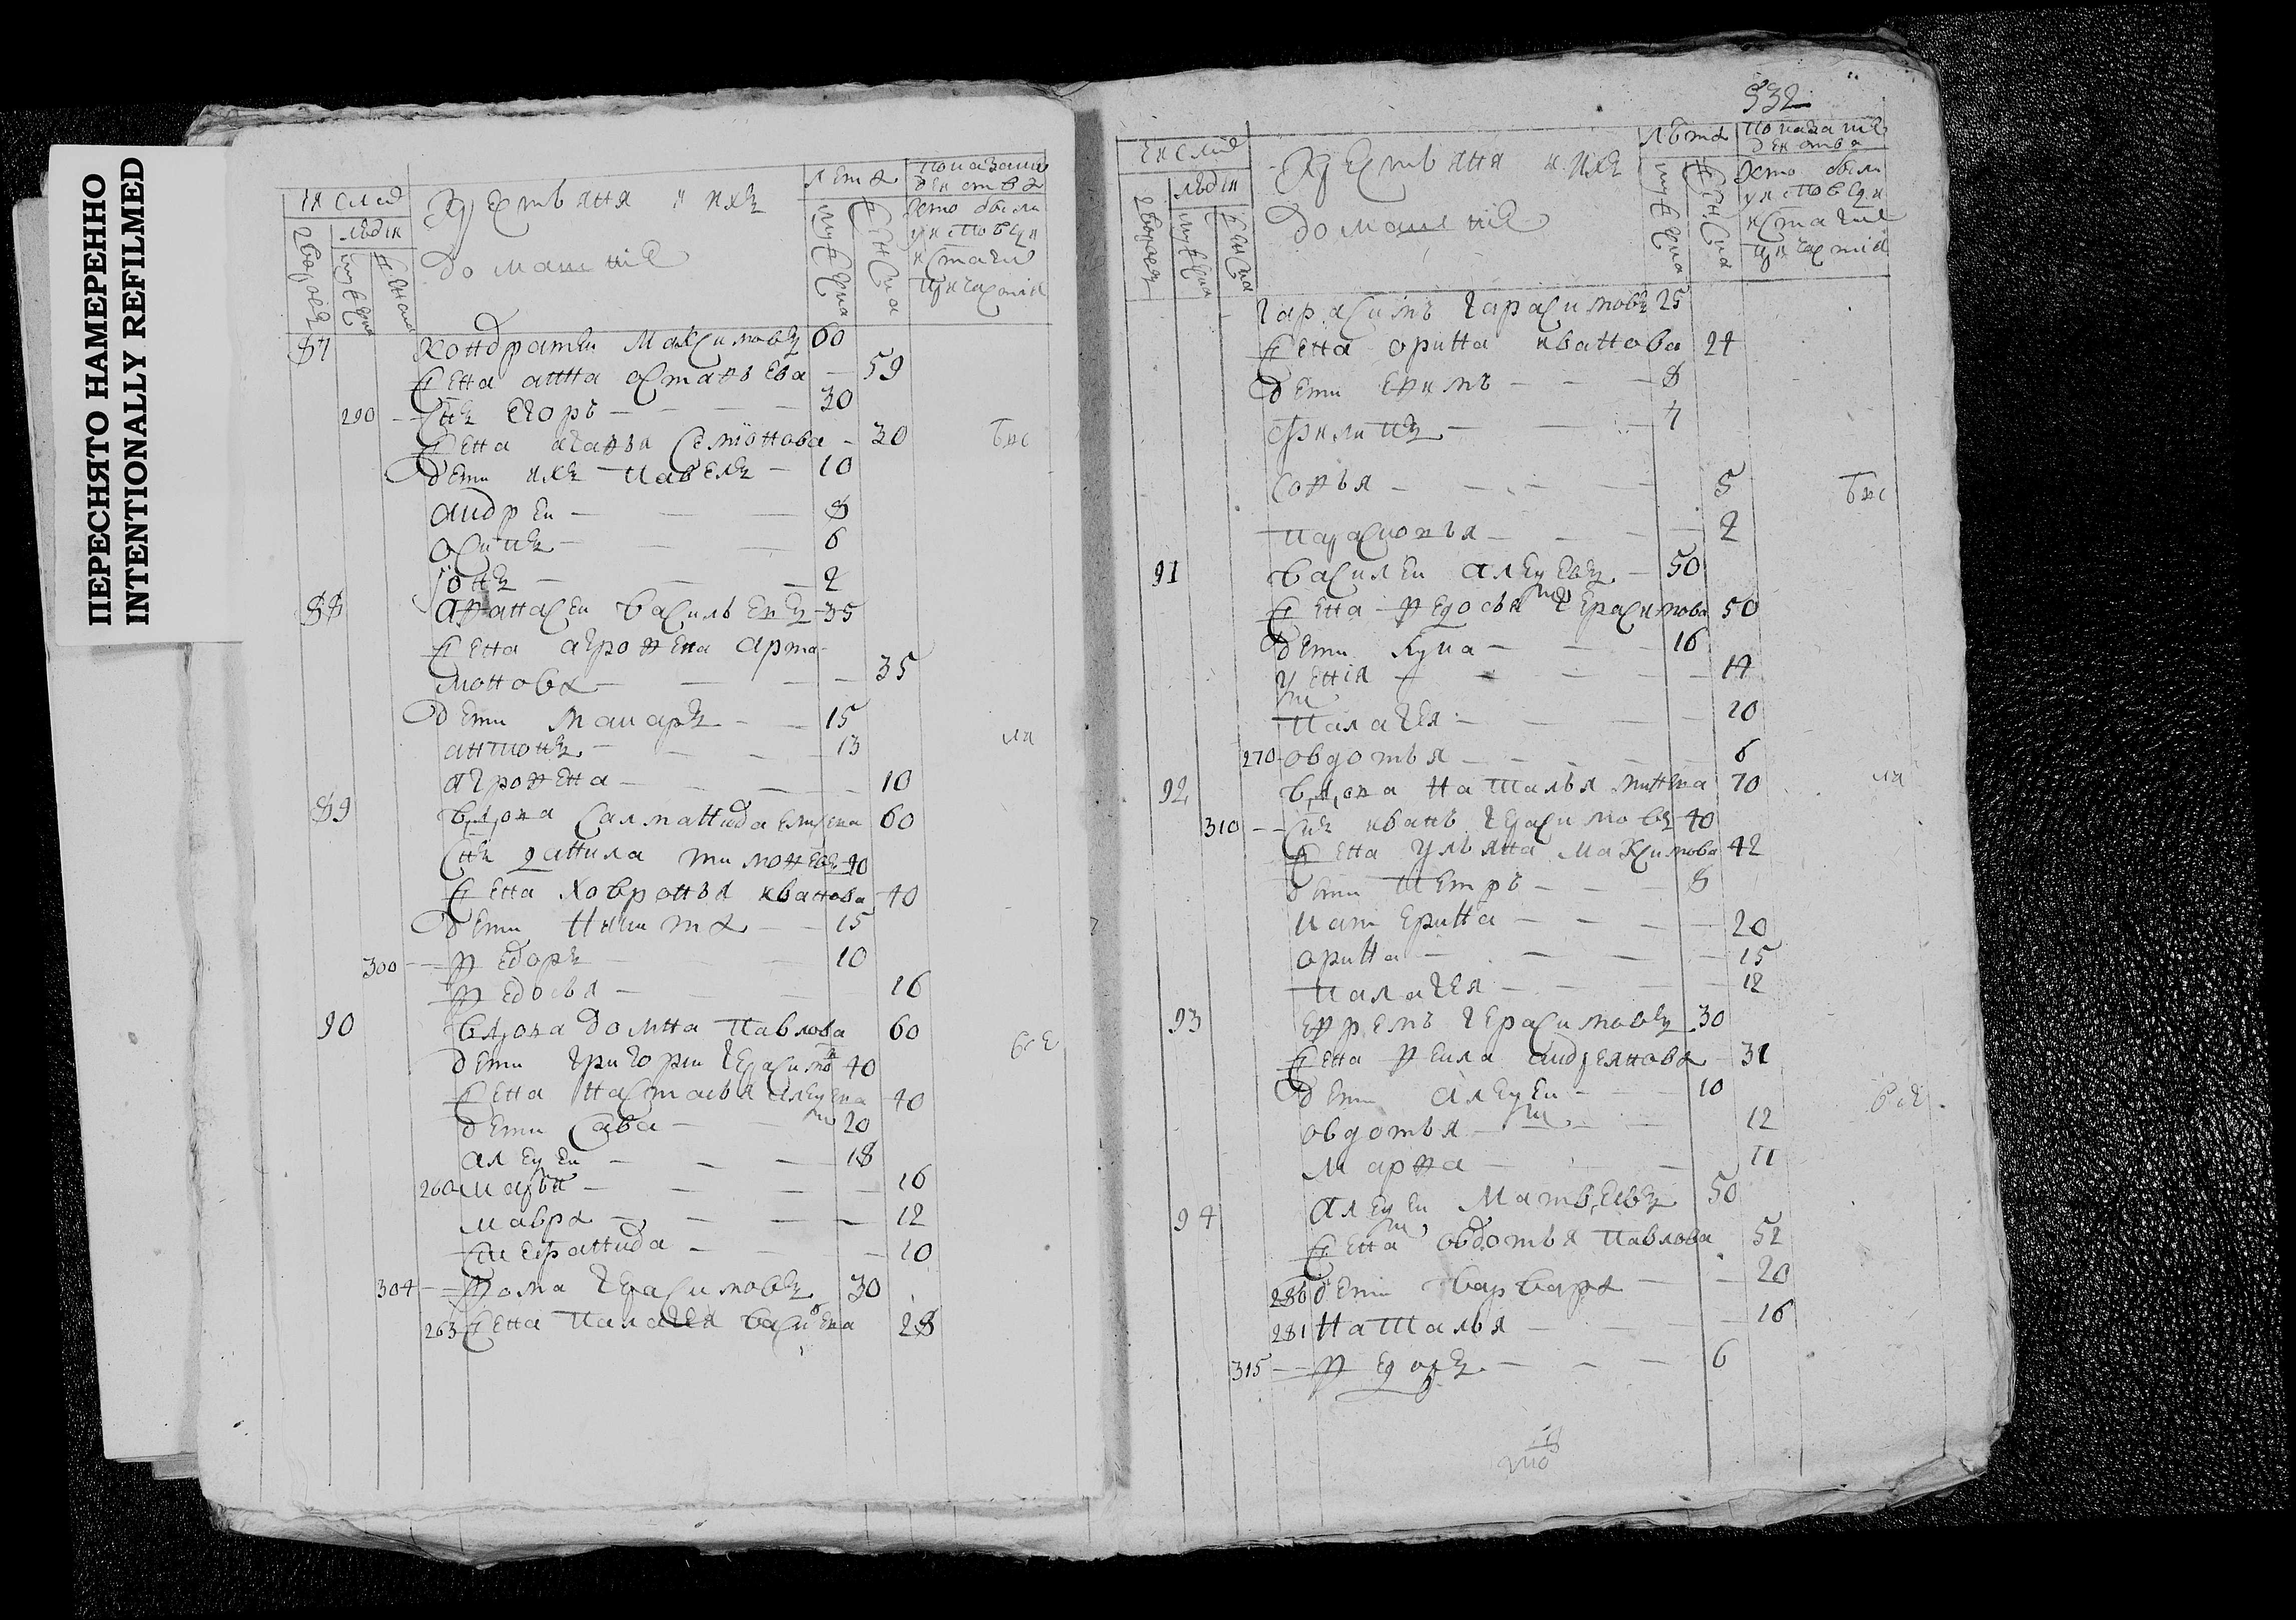 ПЕРЕСНЯТО НАМЕРЕННО
INTENTIONALLY REFILMED
число
людѣи
дворовъ
мужеска
женска
Крестьяня и ихъ
домашние
лета
мужеска
женска
показани
действа
хто были
у исповеди
и стаги
причастия
87 Кондратеи Максимовъ 60
жена анна астафьева 59
290 снъ егоръ 30
жена агафья семионова 30
бы
дети ихъ павелъ 10
андреи 8
осипъ 6
iонъ 2
88 афанасеи васильевъ 35
жена агрофена арта
монова 35
дети макаръ 15
антонъ 13
агрофена 10
89 вдова саламанида 60
снъ данила тимофеевъ 40
жена ховронья иванова 40
дети никита 15
300 федоръ 10
федосья 16
90 вдова домна павлова 60
все
дети григореи герасимов 40
жена настасья алексеева 40
дети сава 20
алексеи 18
260 марья 16
мавра 12
степанида 10
304 фома герасимовъ 30
263 жена палагея васильева 28
532
число
людѣи
дворовъ
мужеска
женска
Крестьяня и ихъ
домашние
лѣта
мужеска
женска
показание
действа
хто были
у исповеди
и стаги
причастия
гарасимъ гарасимовъ 25
жена орина иванова 24
дети ефимъ 8
филипъ 4
софья 5
парасковья 2
91 василеи алексеевъ 50
жена федосья герасимова 50
дети кузма 16
ксения 14
палагея 10
270 овдотья 6
92 вдова наталья 70
310 снъ иванъ герасимовъ 40
жена ульяна максимова 42
дети петръ 8
катерина 20
орина 15
палагея 12
93 ефремъ герасимовъ 30
жена фекла андреянова 31
дети алексеи 10
все
овдотья 12
марфа 11
94 алексеи матвеевъ 50
жена овдотья павлова 52
280 дети варвара 20
281 наталья 16
315 федоръ 6